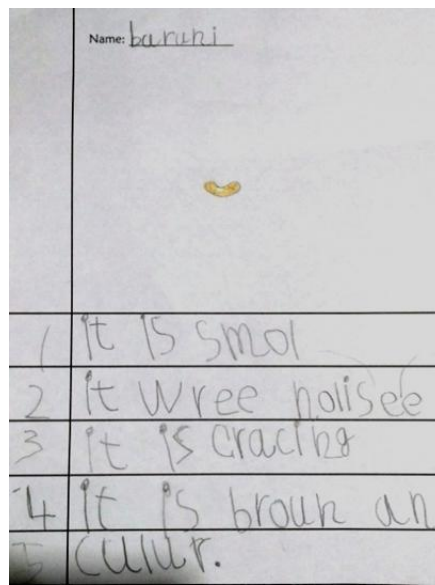 Name: baruni
1 it is smol
2 it wree noiisee
3 it is cracing
4 it is broun an
5 culur.